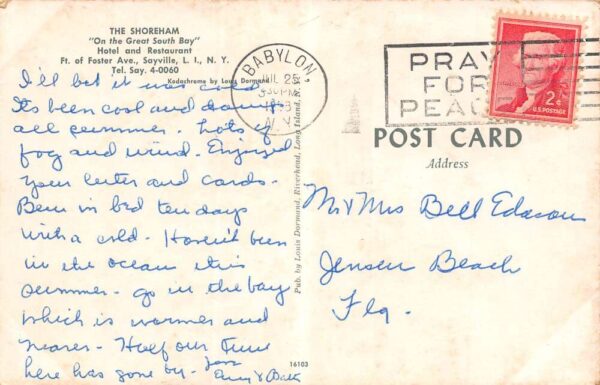 THE SHOREHAM
"On the Great South Bay"
Hotel and Restaurant
Ft. of Foster Ave., Sayville, L. I., N. Y.
Tel. Say. 4-0060
Kodachrome by Louis Dormand
I'll bet it was cold
Its been cool and damp
all summer. Lots of
fog and wind. Enjoyed
your letter and cards.
Been in bed ten days
with a cold. Haven't been
in the ocean this
summer - go in the bay
which is warmer and
nearer. Half our time
here has gone by. Love
Pub. by Louis Dormand, Riverhead, Long Island, N. Y.
16103
BABYLON,
JUL 25
330 PM
N.Y.
PRAY
FOR
PEACE
2¢
U.S. POSTAGE
POST CARD
Address
Mr & Mrs Bell
Jensen Beach
Fla.